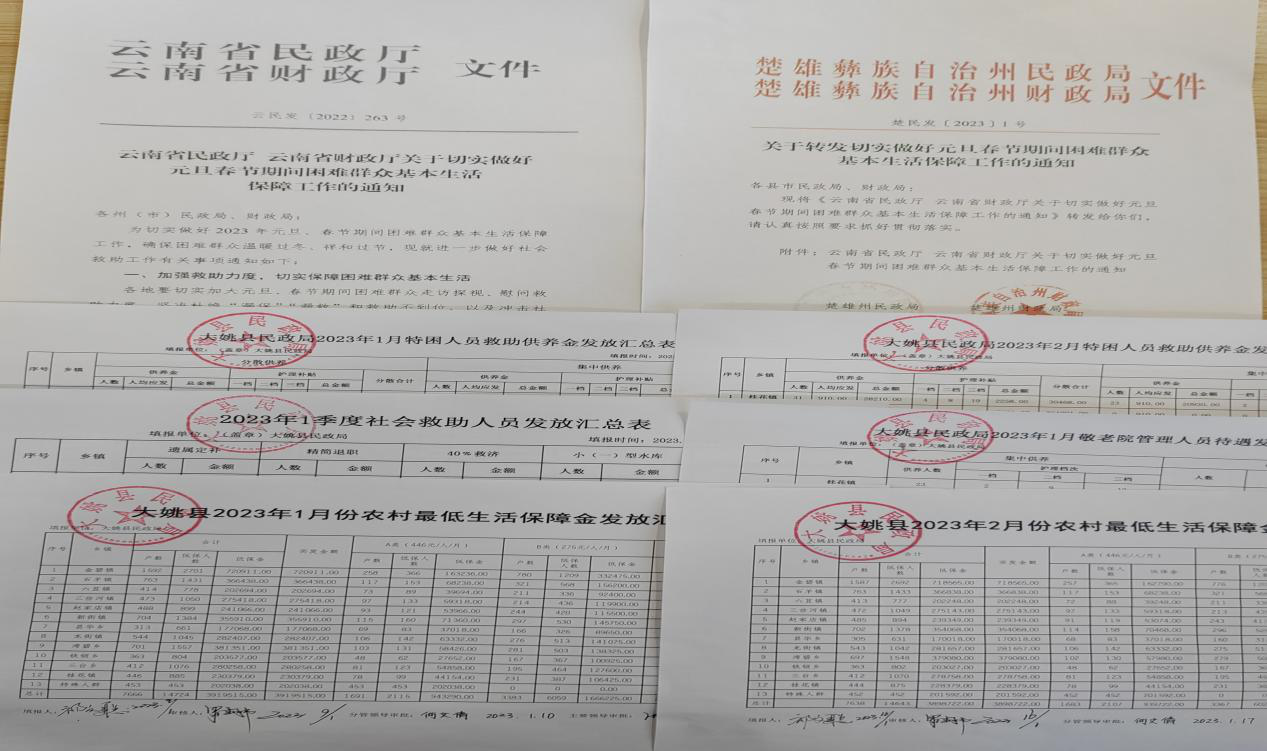 云南省民政厅
云南省财政厅 文件
云民发〔2022〕263 号
云南省民政厅 云南省财政厅关于切实做好
元旦春节期间困难群众基本生活
保障工作的通知
各州（市）民政局、财政局：
为切实做好 2023 年元旦、春节期间困难群众基本生活保障
工作，确保困难群众温暖过冬、祥和过节，现就进一步做好社会
救助工作有关事项通知如下：
一、加强救助力度，切实保障困难群众基本生活
各地要切实加大元旦、春节期间困难群众走访探视、慰问救
楚雄彝族自治州民政局
楚雄彝族自治州财政局 文件
楚民发〔2023〕1 号
关于转发切实做好元旦春节期间困难群众
基本生活保障工作的通知
各县市民政局、财政局：
现将《云南省民政厅 云南省财政厅关于切实做好元旦
春节期间困难群众基本生活保障工作的通知》转发给你们，
请认真按照要求抓好贯彻落实。
附件：云南省民政厅 云南省财政厅关于切实做好元旦
春节期间困难群众基本生活保障工作的通知
楚雄州民政局 楚雄州财政局
大姚县民政局2023年1月特困人员救助供养金发放汇总表
填报单位：（盖章）大姚县民政局 填报时间：202
序号 乡镇 分散供养 集中供养
供养金 护理补贴 分散合计 供养金 护理补贴
人数 人均应发 总金额 一档 二档 一档 总金额 人数 人均应发 总金额 一档 二档
大姚县民政局2023年2月特困人员救助供养金发
填报单位：（盖章）大姚县民政局
序号 乡镇 分散供养
供养金 护理补贴 分散合计 供养金
人数 人均应发 总金额 一档 二档 总金额 人数 人均应发 总金额 一档
1 桂花镇 31 910.00 28210.00 4 8 19 2258.00 30468.00 23 910.00 20930.00
2023年1季度社会救助人员发放汇总表
填报单位：（盖章）大姚县民政局 填报时间：2023.
序号 乡镇 遗属定补 精简退职 40%救济 小（一）型水库
人数 金额 人数 金额 人数 金额 人数 金额
大姚县民政局2023年1月敬老院管理人员待遇发
填报单位：（盖章）大姚县民政局
序号 乡镇 集中供养
供养人数 护理档次 人数
一档 二档 二档
1 桂花镇 23 2 9 12
大姚县2023年1月份农村最低生活保障金发放汇
填报单位：大姚县民政局
序号 乡镇 合计 实发金额 A类（446元/人/月） B类（276元/人/月）
户数 低保人数 低保金 户数 低保人数 低保金 户数 低保人数 低保金
1 金碧镇 1592 2701 720911.00 720911.00 258 366 163236.00 780 1209 332475.00
2 石羊镇 763 1431 366438.00 366438.00 117 153 68238.00 321 568 156200.00
3 六苴镇 414 778 202694.00 202694.00 73 89 39694.00 211 336 92400.00
4 三岔河镇 473 1060 275418.00 275418.00 97 133 59318.00 214 436 119900.00
5 赵家店镇 488 899 241066.00 241066.00 93 121 53966.00 244 420 115500.00
6 新街镇 704 1384 355910.00 355910.00 115 160 71360.00 297 530 145750.00
7 昙华乡 313 661 177068.00 177068.00 69 83 37018.00 166 326 89650.00
8 龙街镇 544 1045 282407.00 282407.00 106 142 63332.00 276 513 141075.00
9 湾碧乡 701 1557 381351.00 381351.00 103 131 58426.00 281 503 138325.00
10 铁锁乡 363 804 203577.00 203577.00 48 62 27652.00 167 367 100925.00
11 三台乡 412 1076 280258.00 280258.00 81 123 54858.00 195 464 127600.00
12 桂花镇 446 885 230379.00 230379.00 78 99 44154.00 231 387 106425.00
13 特殊人群 453 453 202038.00 202038.00 453 453 202038.00 0 0 0.00
总计 7666 14724 3919515.00 3919515.00 1691 2115 943290.00 3383 6059 1666225.00
填报人： 审核人： 2023 9/1 分管领导审批：何文倩 2023.1.10 主要领导审批：
大姚县2023年2月份农村最低生活保障金
填报单位：大姚县民政局
序号 乡镇 合计 实发金额 A类（446元/人/月） B类
户数 低保人数 低保金 户数 低保人数 低保金 户数
1 金碧镇 1587 2692 718565.00 718565.00 257 365 162790.00 776
2 石羊镇 763 1433 366838.00 366838.00 117 153 68238.00 321
3 六苴镇 413 777 202248.00 202248.00 72 88 39248.00 211
4 三岔河镇 472 1049 275143.00 275143.00 97 133 59318.00 213
5 赵家店镇 485 894 239349.00 239349.00 91 119 53074.00 243
6 新街镇 702 1378 354068.00 354068.00 114 158 70468.00 296
7 昙华乡 305 631 170018.00 170018.00 68 83 37018.00 160
8 龙街镇 543 1042 281657.00 281657.00 106 142 63332.00 275
9 湾碧乡 697 1548 379080.00 379080.00 102 130 57980.00 279
10 铁锁乡 363 802 203027.00 203027.00 48 62 27652.00 167
11 三台乡 412 1070 278758.00 278758.00 81 123 54858.00 195
12 桂花镇 444 875 228379.00 228379.00 78 99 44154.00 231
13 特殊人群 452 452 201592.00 201592.00 452 452 201592.00 0
总计 7638 14643 3898722.00 3898722.00 1683 2107 939722.00 3367
填报人： 审核人： 2023 16/1 分管领导审批：何文倩 2023.1.17